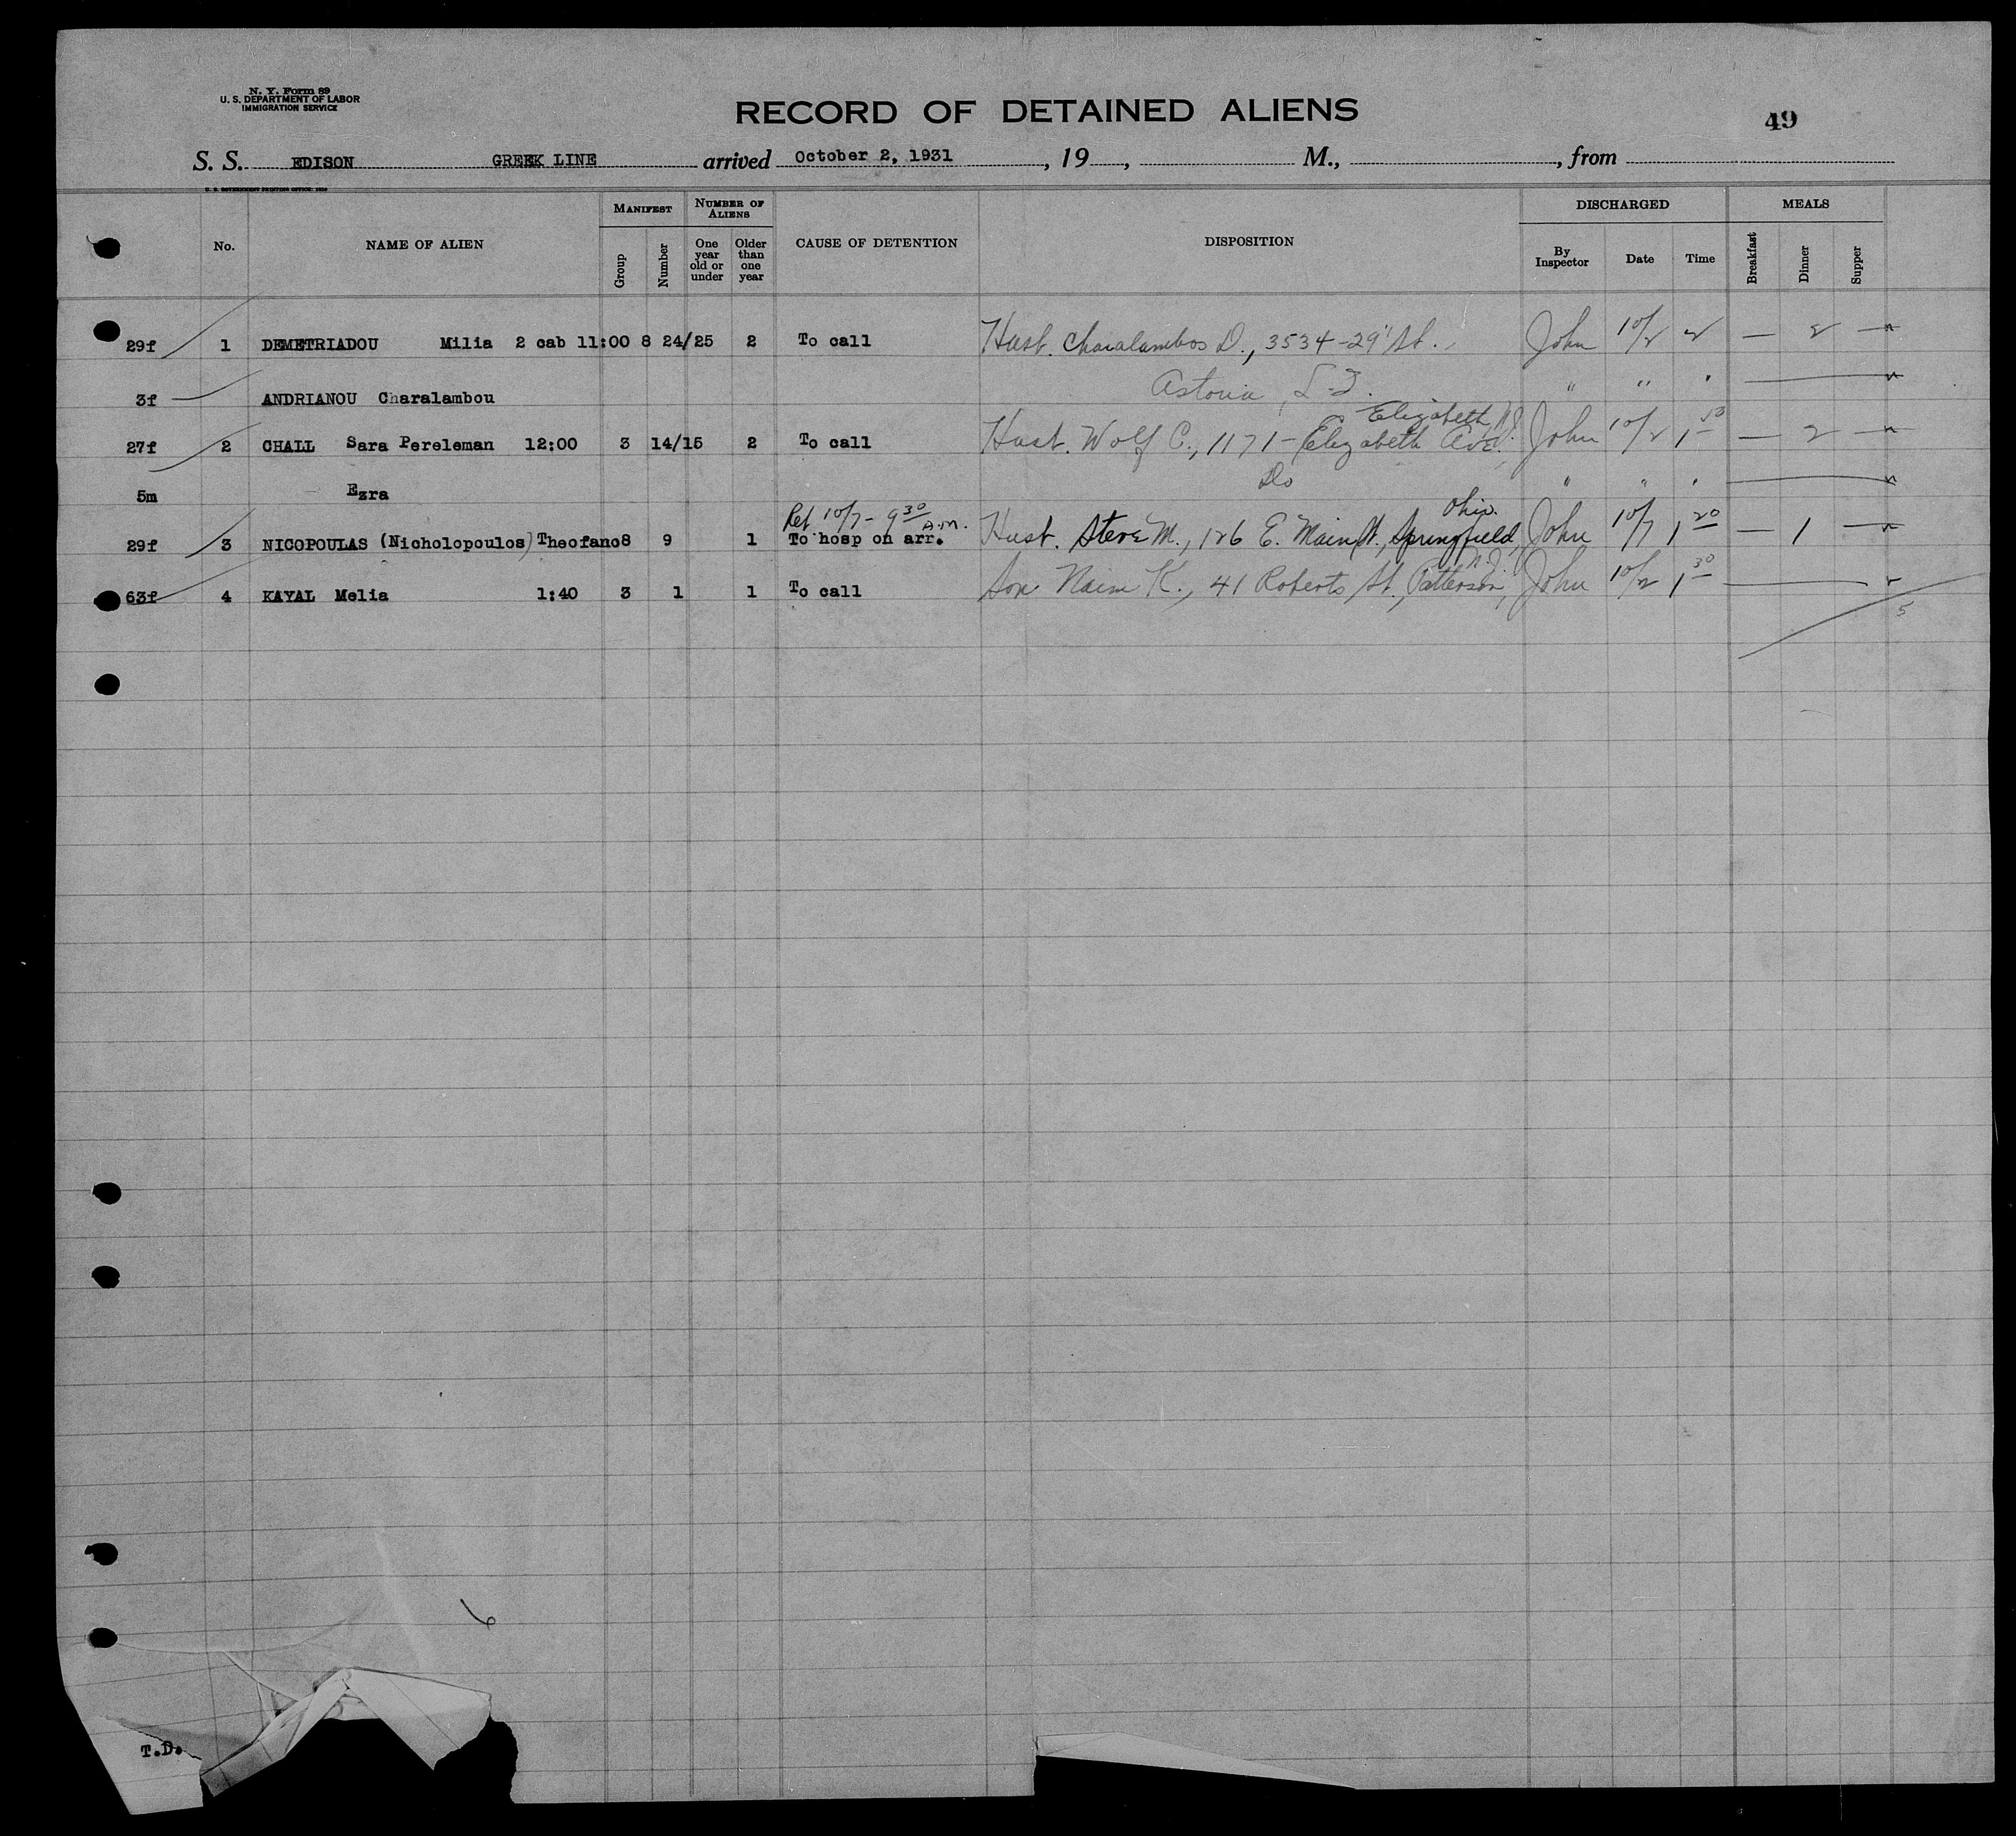 N. Y. Form 89
U. S. DEPARTMENT OF LABOR
IMMIGRATION SERVICE
RECORD OF DETAINED ALIENS
49
S. S. EDISON GREEK LINE arrived October 2, 1931, 19 , M., , from
U. S. GOVERNMENT PRINTING OFFICE
No. NAME OF ALIEN MANIFEST Group Number NUMBER OF ALIENS One year old or under Older than one year CAUSE OF DETENTION DISPOSITION DISCHARGED By Inspector Date Time MEALS Breakfast Dinner Supper
29f 1 DEMETRIADOU Milia 2 cab 11:00 8 24/25 2 To call Husb. Charalambos D., 3534-29" St. John 10/2 2 — 2 —
3f ANDRIANOU Charalambou Astoria, L.I. " " "
Elizabeth, N.J.
27f 2 CHALL Sara Pereleman 12:00 3 14/15 2 To call Husb. Wolf C., 1171-Elizabeth Ave. John 10/2 1 50 — 2 —
5m Ezra Do " " "
Ret 10/7 - 9 30 A.M. Ohio.
29f 3 NICOPOULAS (Nicholopoulos) Theofano 8 9 1 To hosp on arr. Husb. Steve M., 126 E. Main St., Springfield, John 10/7 1 20 — 1 —
N.J.
63f 4 KAYAL Melia 1:40 3 1 1 To call Son Naim K., 41 Roberts St., Patterson, John 10/2 1 30
5
6
T.D.